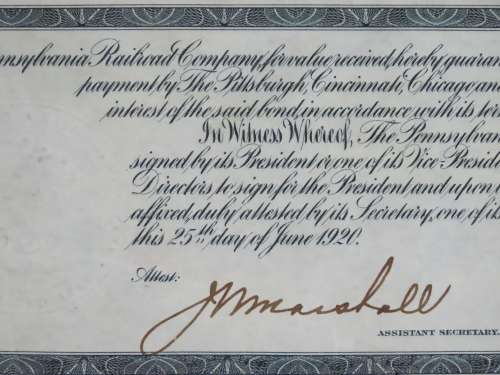 nnsylvania Railroad Company, for value received, hereby guaran
payment by The Pittsburgh, Cincinnati, Chicago and
interest of the said bond, in accordance with its ter
In Witness Whereof, The Pennsylvan
signed by its President or one of its Vice-Presid
Directors, to sign for the President and upon
affixed, duly attested by its Secretary, one of its
this 25th day of June 1920.
Attest:
JW Marshall
ASSISTANT SECRETARY.